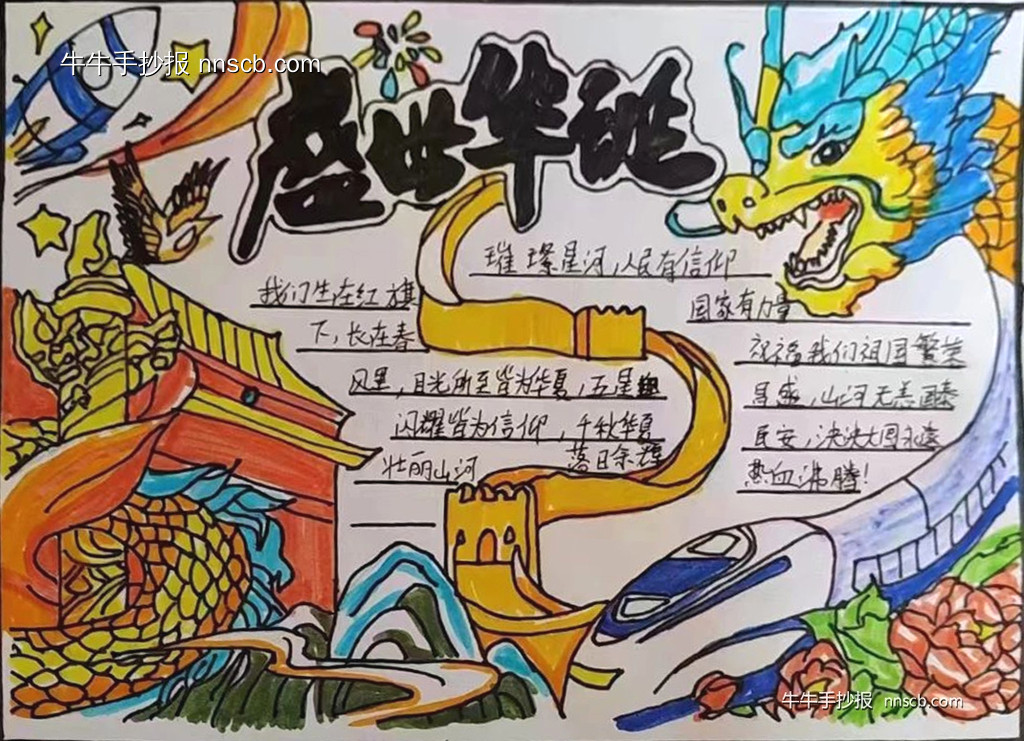 牛牛手抄报 nnscb.com
盛世华诞
璀璨星河,人民有信仰
我们生在红旗
国家有力量
下,长在春
祝福我们祖国繁荣
风里,目光所至皆为华夏,五星
昌盛,山河无恙国泰
闪耀皆为信仰,千秋华夏
民安,泱泱大国永远
落日余辉
壮丽山河
热血沸腾!
牛牛手抄报 nnscb.com